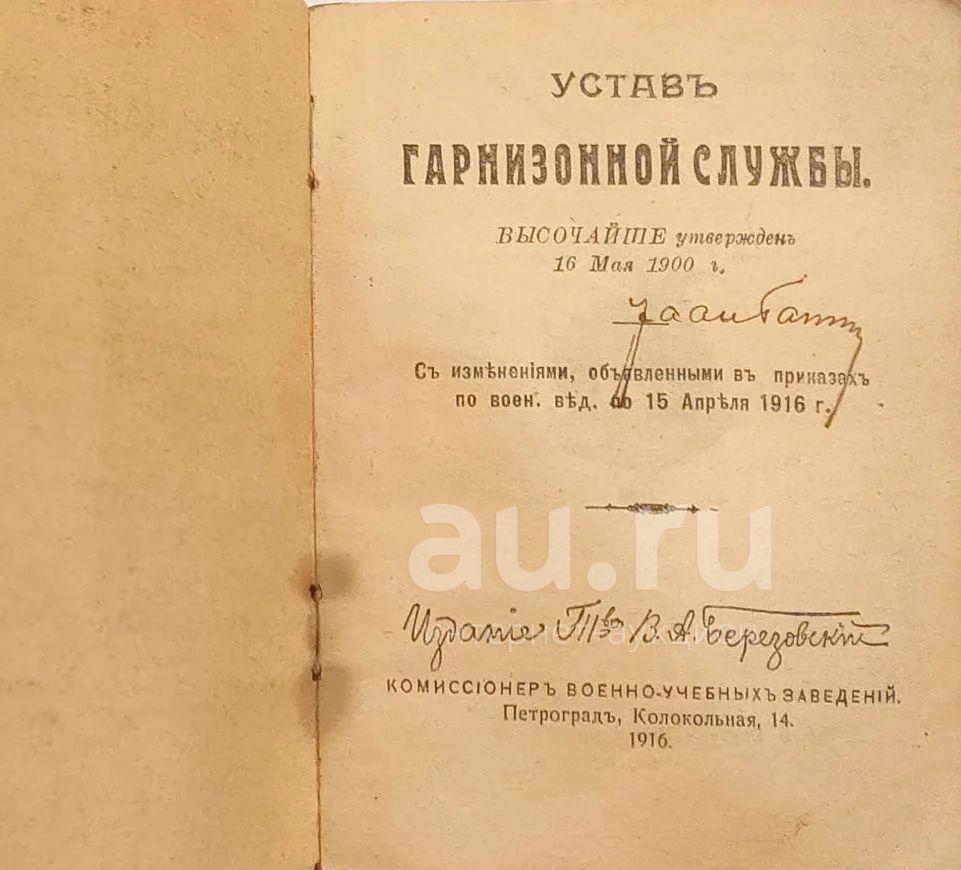 УСТАВЪ
ГАРНИЗОННОЙ СЛУЖБЫ.
ВЫСОЧАЙШЕ утвержденъ
16 Мая 1900 г.
Съ измѣненіями, объявленными въ приказахъ
по воен. вѣд. по 15 Апрѣля 1916 г.
au.ru
Изданіе Т-ва В. А. Березовскій
КОМИССІОНЕРЪ ВОЕННО-УЧЕБНЫХЪ ЗАВЕДЕНІЙ.
Петроградъ, Колокольная, 14.
1916.